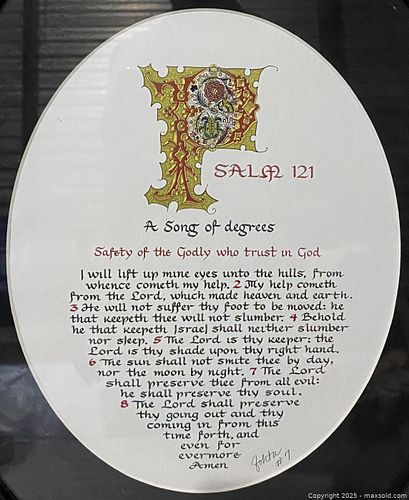 PSALM 121
A Song of degrees
Safety of the Godly who trust in God
I will lift up mine eyes unto the hills, from
whence cometh my help. 2 My help cometh
from the Lord, which made heaven and earth.
3 He will not suffer thy foot to be moved: he
that keepeth thee will not slumber. 4 Behold
he that keepeth Israel shall neither slumber
nor sleep. 5 The Lord is thy keeper: the
Lord is thy shade upon thy right hand.
6 The sun shall not smite thee by day,
nor the moon by night. 7 The Lord
shall preserve thee from all evil:
he shall preserve thy soul.
8 The Lord shall preserve
thy going out and thy
coming in from this
time forth, and
even for
evermore
Amen
Copyright 2025 - maxsold.com